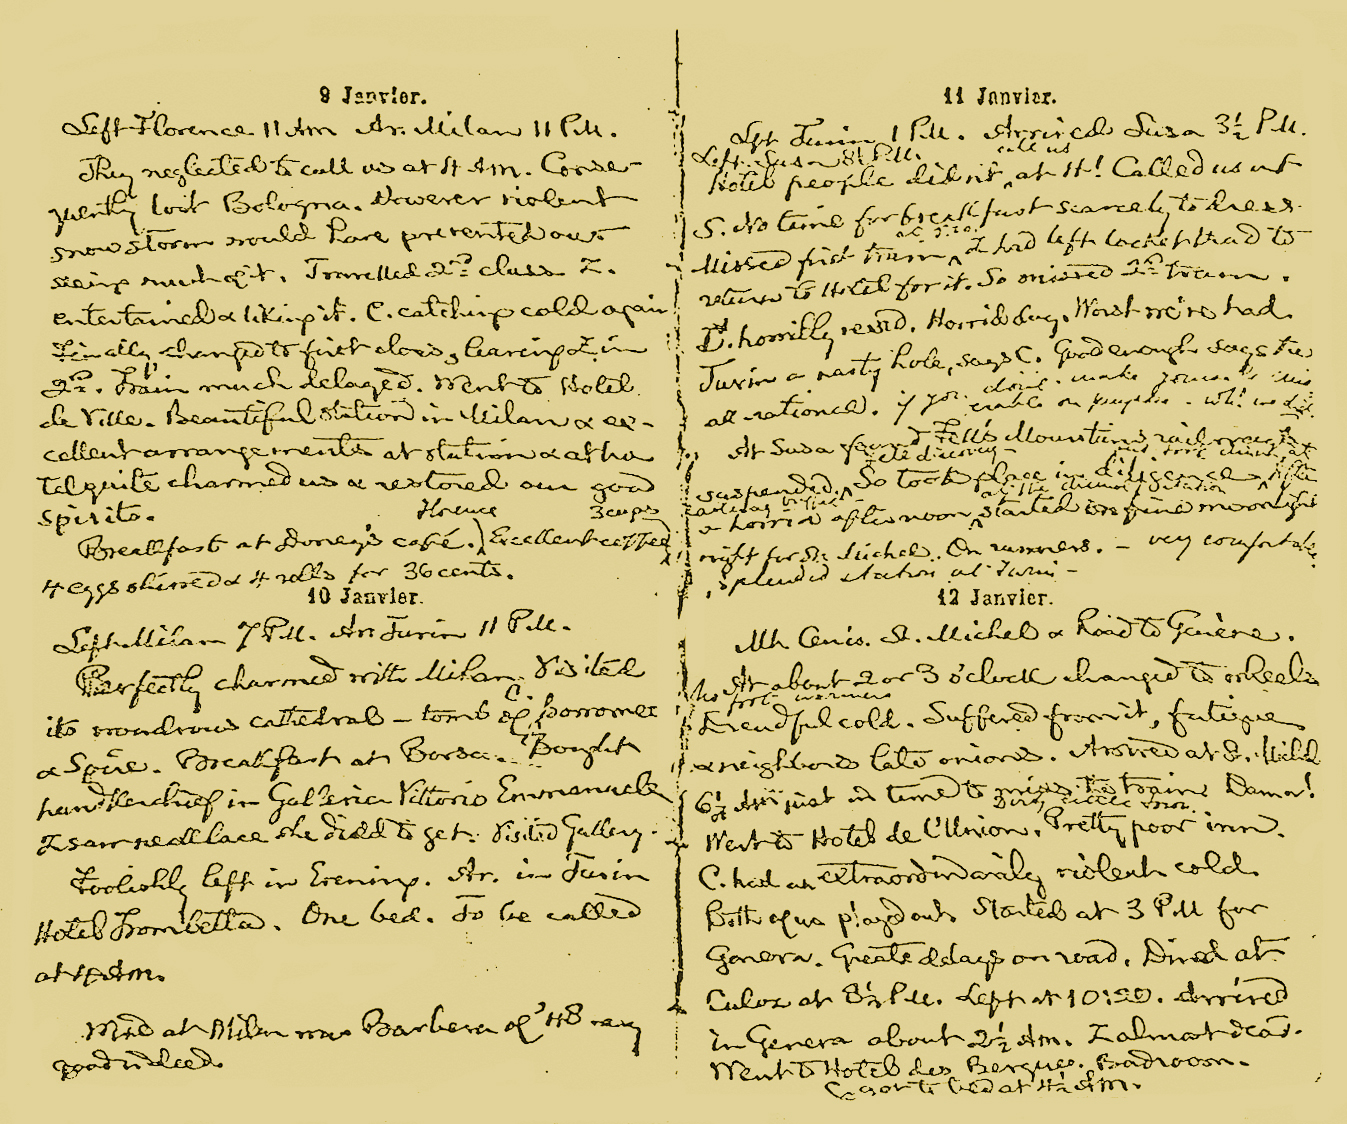 9 Janvier.
Left Florence 11 AM Ar. Milan 11 P.M.
They neglected to call us at 4 AM. Conse
quently lost Bologna. However violent
snow storm would have prevented our
seeing much of it. Travelled 2nd class Z.
entertained & liking it. C. catching cold again
Finally changed to first class, leaving Z. in
2nd. Train much delayed. Went to Hotel
de Ville. Beautiful station in Milan & ex-
cellent arrangements at station & at ho
tel quite charmed us & restored our good
spirits.
Breakfast at Doney's café. Florence Excellent coffee 3 cups
4 eggs shirred & 4 rolls for 36 cents.
10 Janvier.
Left Milan 7 P.M. Ar. Turin 11 P.M.
Perfectly charmed with Milan. Visited
its wondrous cathedral – tomb of C. Borromeo
& Spire. Breakfast at Borsa. Bought
handkerchief in Galleria Vittorio Emmanuele
Z saw necklace she didd to get. Visited Gallery.
Foolishly left in Evening. Ar. in Turin
Hotel Trombetta. One bed. To be called
at 4 AM.
Wine at Milan was Barbera of '48 very
good indeed.
11 Janvier.
Left Turin 1 P.M. Arrived Susa 3½ P.M.
Left Susa 8 P.M.
Hotel people didn't call us at 4! Called us at
5. No time for breakfast scarcely to dress.
Missed first train at 5:20. Z had left locket & had to
return to Hotel for it. So missed 2nd train.
Z. horribly rev'd. Horrid day. Worst we've had.
Turin a nasty hole, says C. Good enough says the
all rational. if you don't make yourself
on purpose - we did
At Susa found Fell's Mountain railroad
suspended. So took place in diligence. After
a horrid afternoon at the station started on fine moonlight
night for St. Michel. On runners. – very comfortable
splendid station at Turin –
12 Janvier.
Mt. Cenis. St. Michel & Road to Genève.
At about 2 or 3 o'clock changed to wheels
No foot warmers
Dreadful cold. Suffered from it, fatigue
& neighbors late onions. Arrived at St. Michel
6½ AM just in time to miss the train. Damn!
Went to Hotel de l'Union. Dirty little room. Pretty poor inn.
C. had an extraordinarily violent cold.
Both of us played out. Started at 3 P.M. for
Geneva. Greate delays on road. Dined at
Culoz at 8½ P.M. Left at 10:20. Arrived
in Geneva about 2½ AM. Z almost dead.
Went to Hotel des Bergues. Bad room.
C. got to bed at 4½ AM.